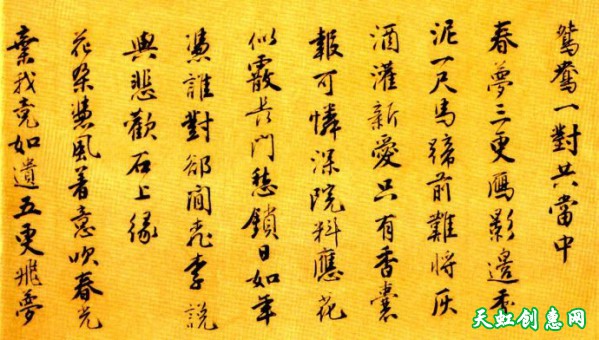 鴛鴦一對共當中
春夢三更鴈影邊香
泥一尺馬蹄前難將灰
酒灌新愛只有香囊
報可憐深院料應花
似霰長門愁鎖日如年
憑誰對卻閒桃李說
與悲歡石上緣
花朵憑風着意吹春光
棄我竟如遺五更飛夢
天虹创惠网